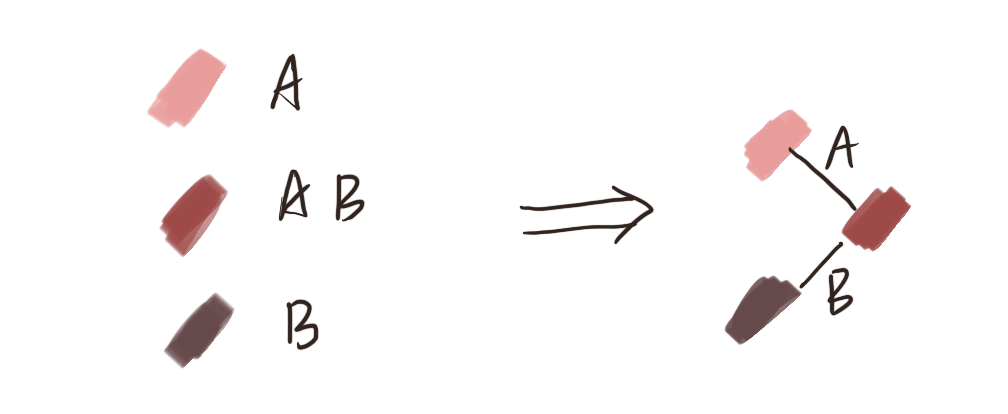 A
A B
B
A
B